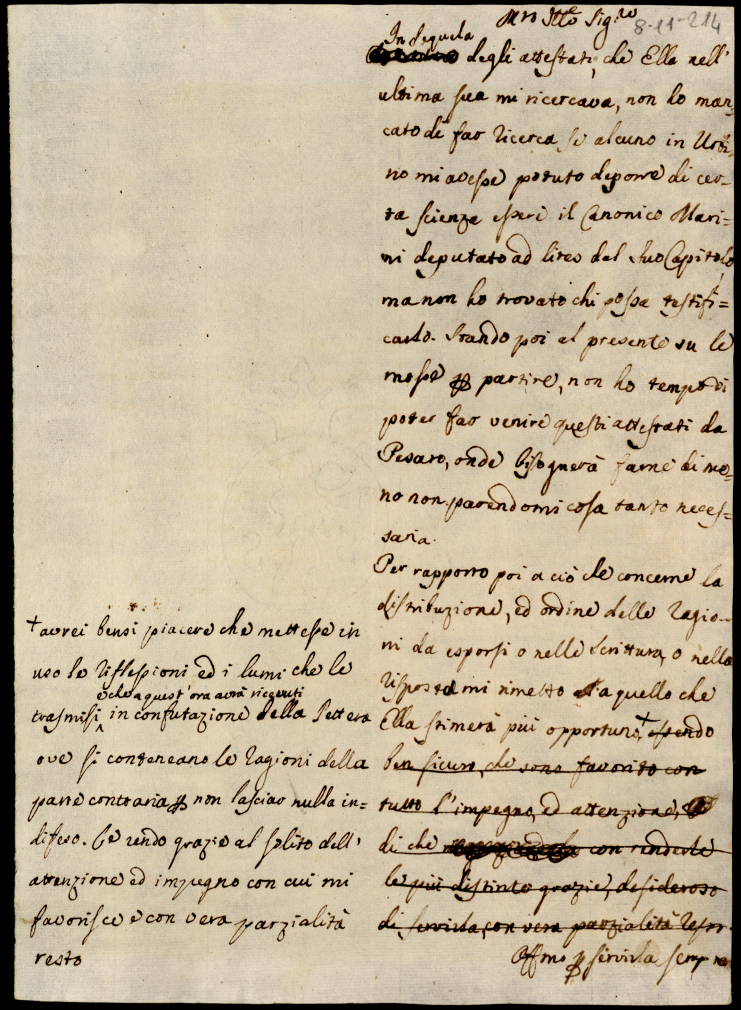 Mto Ill.e Sig.re
8-11-214
In sequela
degli attestati, che Ella nell'
ultima sua mi ricercava, non ho man=
cato di far ricerca se alcuno in Urbi=
no mi avesse potuto deporre di cer=
ta scienza esservi il Canonico Mari=
ni deputato ad lites dal suo Capitolo,
ma non ho trovato chi possa testifi=
carlo. Stando poi al presente su le
mosse p partire, non ho tempo di
poter far venire questi attestati da
Pesaro, onde bisognerà farne di me=
no non parendomi cosa tanto neces=
saria.
Per rapporto poi a ciò che concerne la
distribuzione, ed ordine delle ragio=
ni da esporsi o nelle scrittura, o nella
risposta mi rimetto a quello che
Ella stimerà più opportuno + essendo
ben sicuro, che sono favorito con
tutto l'impegno, ed attenzione,
di che con renderle
le più distinte grazie, desideroso
di servirla, con vera parzialità resto
Affmo p servirla sempre
+ avrei bensi piacere che mettesse in
uso le riflessioni ed i lumi che le
e che a quest'ora avrà ricevuti
trasmisi in confutazione della lettera
ove si conteneano le ragioni della
parte contraria p non lasciar nulla in=
difeso. Le rendo grazie al solito dell'
attenzione ed impegno con cui mi
favorisce e con vera parzialità
resto